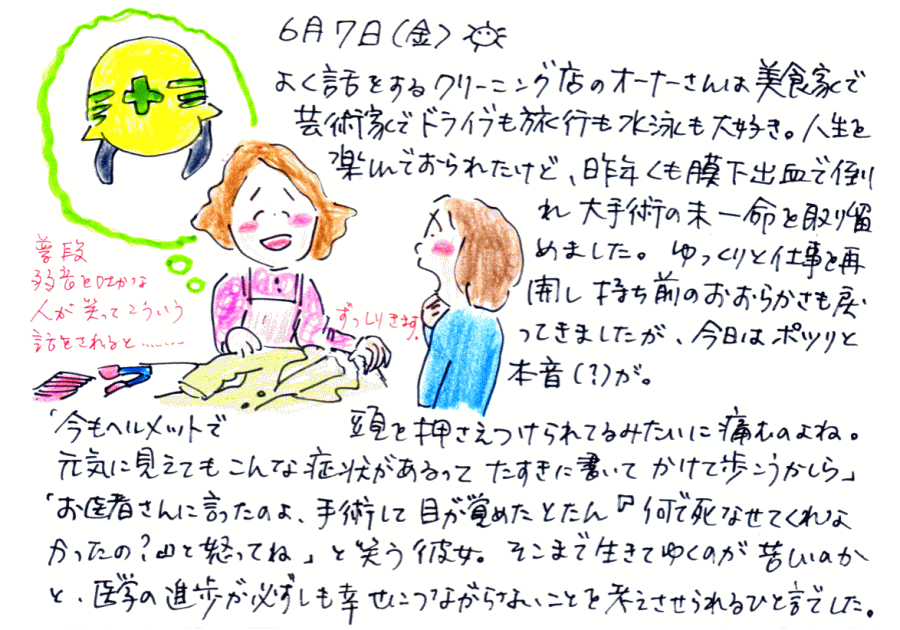 6月7日(金)
よく話をするクリーニング店のオーナーさんは美食家で
芸術家でドライブも旅行も水泳も大好き。人生を
楽しんでおられたけど、昨年くも膜下出血で倒
れ大手術の末一命を取り留
めました。ゆっくりと仕事を再
開し持ち前のおおらかさも戻
ってきましたが、今日はポツリと
本音(?)が。
普段
弱音を吐かな
人が笑ってこういう
話をされると………
ずっしりきます。
「今もヘルメットで頭を押さえつけられてるみたいに痛むのよね。
元気に見えてもこんな症状があるってたすきに書いてかけて歩こうかしら」
「お医者さんに言ったのよ、手術して目が覚めたとたん『何で死なせてくれな
かったの?』と怒ってね」と笑う彼女。そこまで生きてゆくのが苦しいのか
と、医学の進歩が必ずしも幸せにつながらないことを考えさせられるひと言でした。